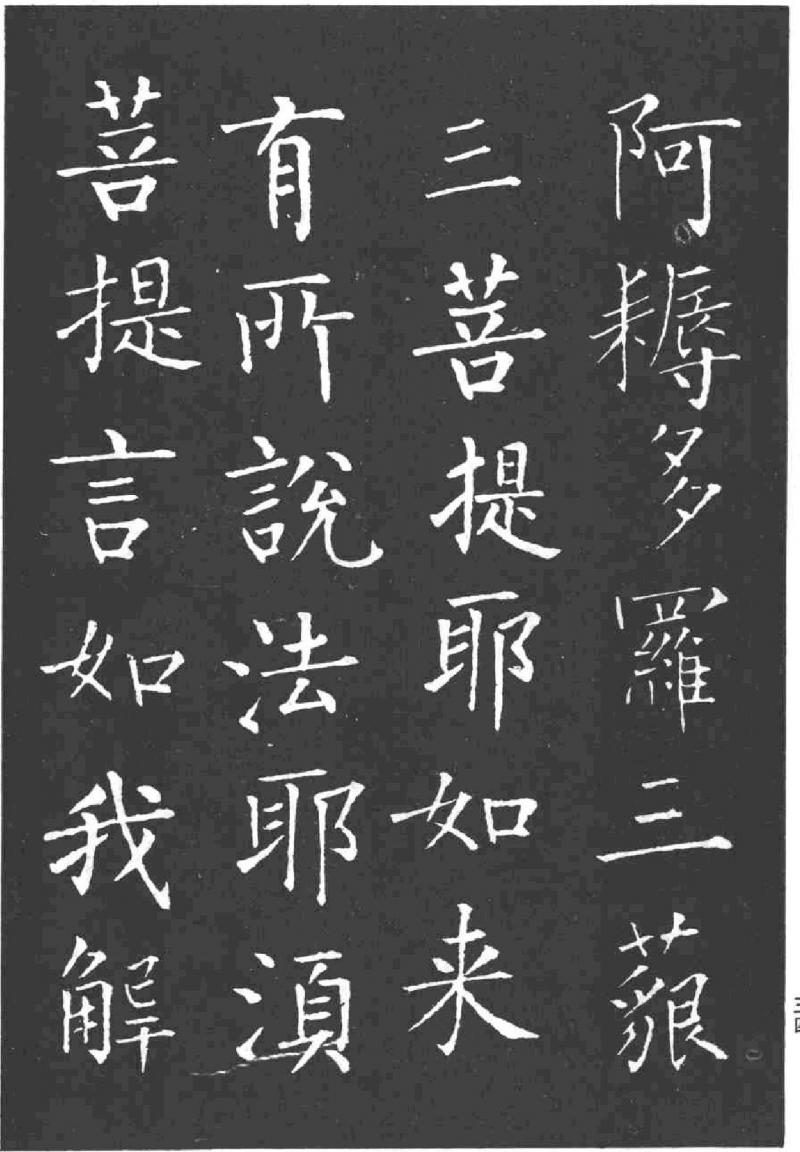 阿耨多羅三藐
三菩提耶如来
有所說法耶須
菩提言如我解
三四